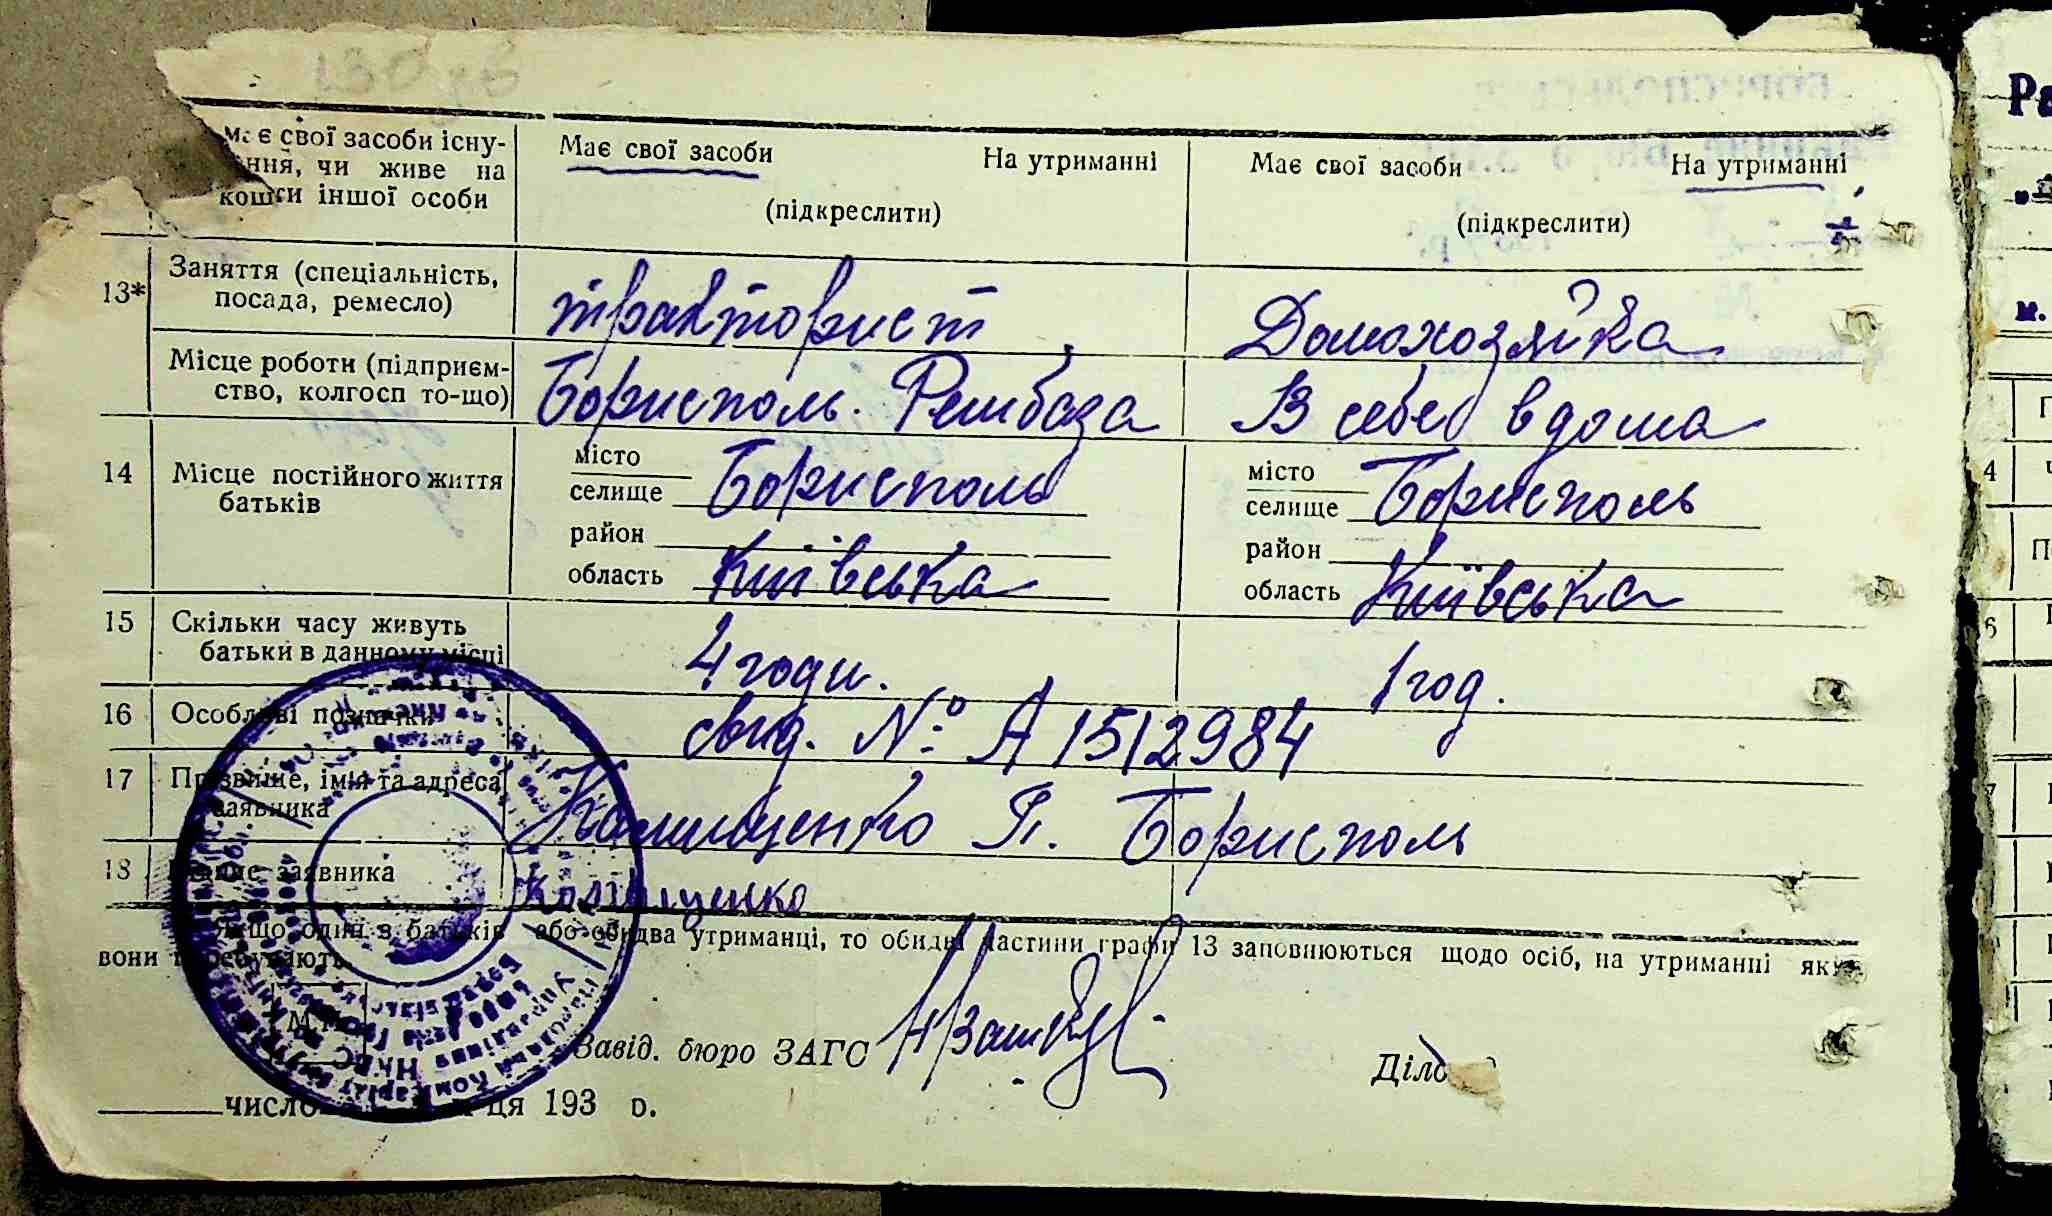 має свої засоби існу-
ання, чи живе на
кошти іншої особи
Має свої засоби На утриманні
(підкреслити)
Має свої засоби На утриманні
(підкреслити)
13* Заняття (спеціальність,
посада, ремесло)
тракторист
Домохозяйка
Місце роботи (підприєм-
ство, колгосп то-що)
Борисполь. Рембаза
В себе вдома
14 Місце постійного життя
батьків
місто
селище Борисполь
район
область Київська
місто
селище Борисполь
район
область Київська
15 Скільки часу живуть
батьки в данному місці
4 годи.
1 год.
16 Особливі позначки
свид. № А 1512984
17 Прізвище, імія та адреса
заявника
П. Борисполь
18 заявника
Якщо один з батьків або обидва утриманці, то обидві частини графи 13 заповнюються щодо осіб, на утриманні яких
вони перебувають
М.П.
Завід. бюро ЗАГС
Діло
число ця 193 р.
НКВС
Ра
м.